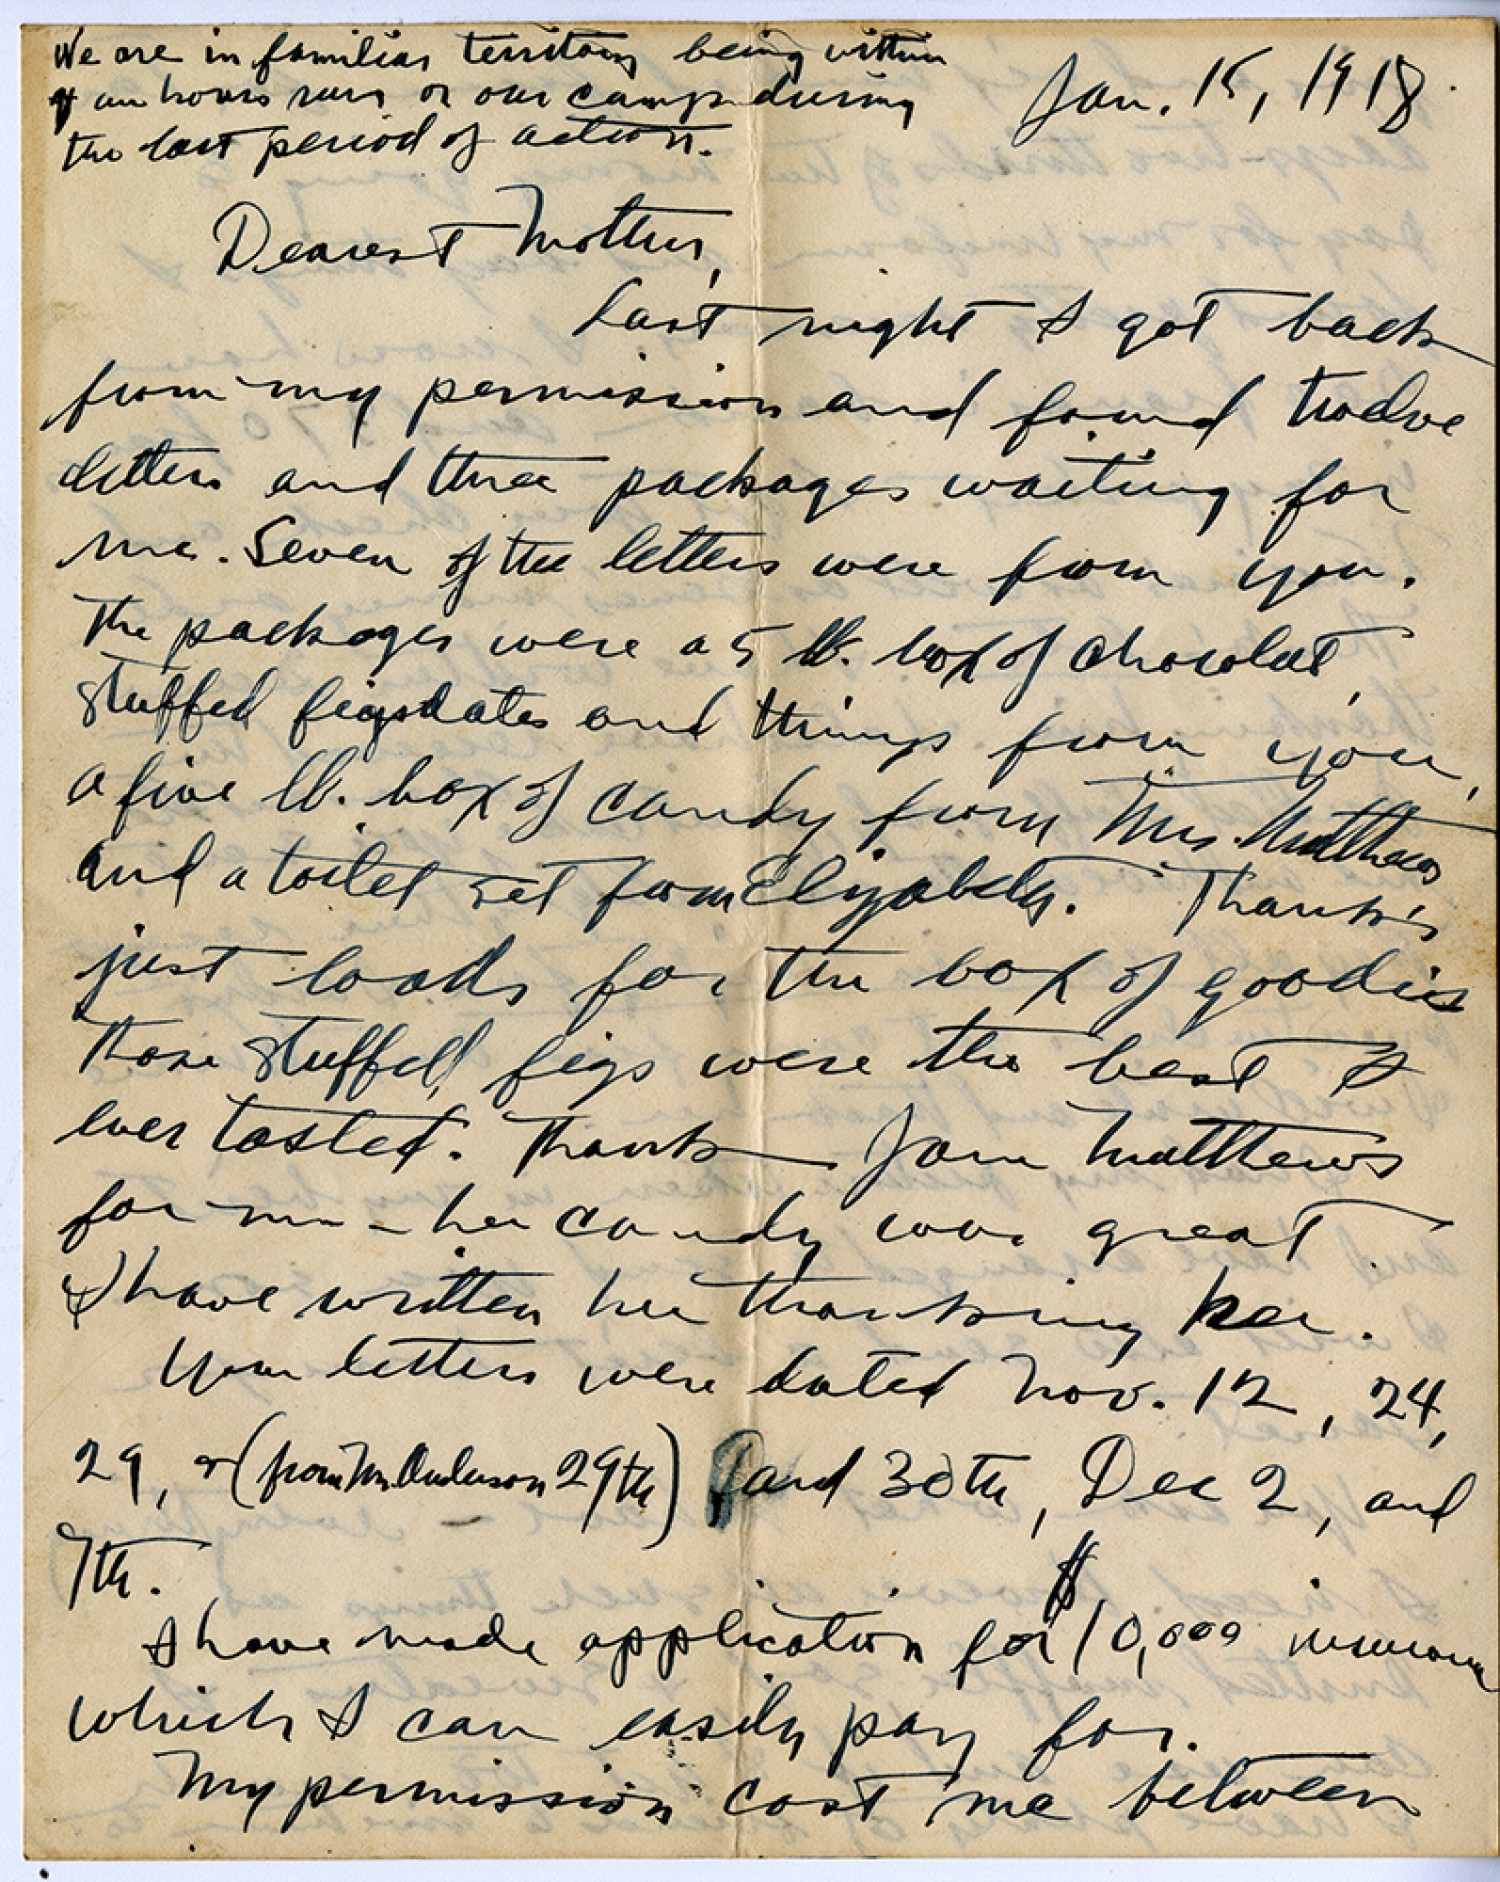 We are in familiar territory being within
an hours run of our camp during
the last period of action.
Jan. 15, 1918
Dearest Mother,
Last night I got back
from my permission and found twelve
letters and three packages waiting for
me. Seven of the letters were from you.
The packages were a 5 lb. box of chocolat,
stuffed figs dates and things from you,
a five lb. box of candy from Mrs. Matthews
and a toilet set from Elizabeth. Thanks
just loads for the box of goodies
those stuffed figs were the best I
ever tasted. Thank Jane Matthews
for me - her candy was great
I have written her thanking her.
Your letters were dated Nov. 12, 24,
29, (from Mr. Anderson 29th) and 30th, Dec 2, and
7th.
I have made application for $10,000 insurance
which I can easily pay for.
My permission cost me between